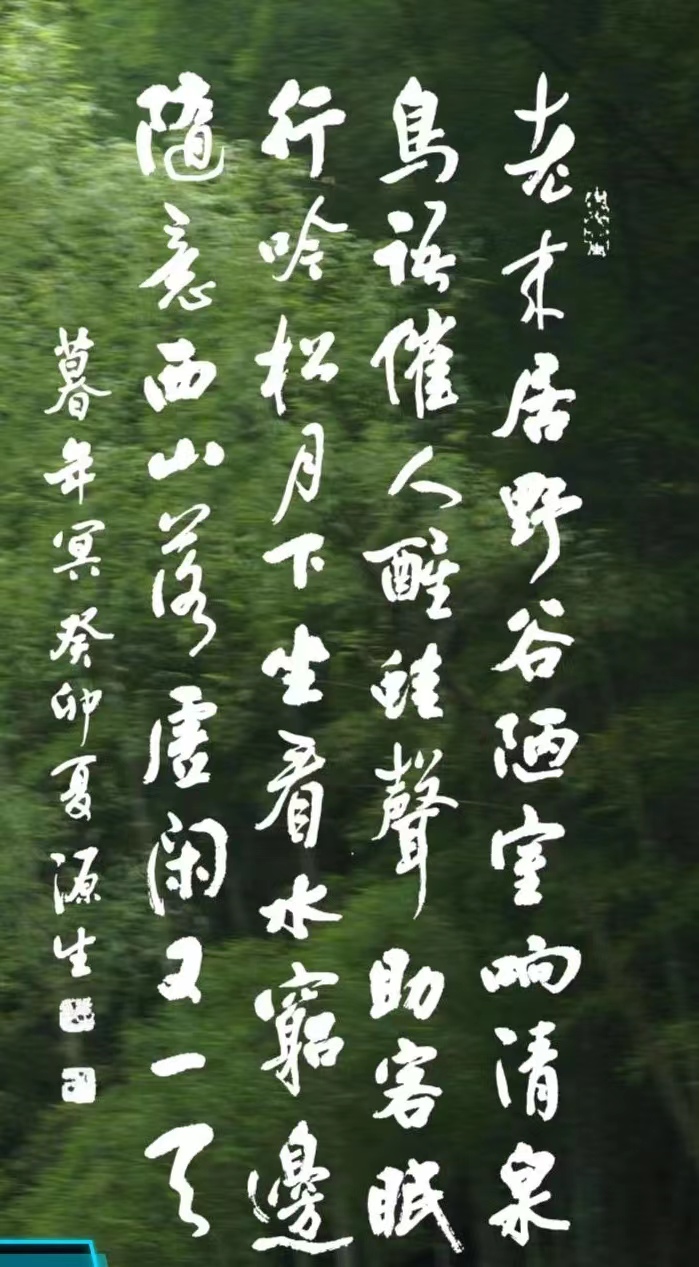 老来居野谷陋室响清泉
鳥语催人醒蛙聲助客眠
行吟松月下坐看水窮邊
隨意西山落虚闲又一天
暮年冥癸卯夏源生